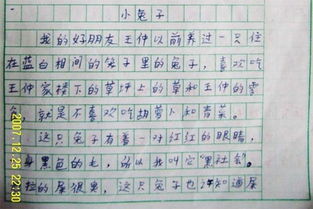 小兔子
我的好朋友王仲以前养过一只住
在蓝白相间的笼子里的兔子，喜欢吃
王仲家楼下的草坪上的草和王仲的零
食，就是不喜欢吃胡萝卜和青菜。
这只兔子有着一对红红的眼睛，
身黑色的毛，所以我叫它"黑社会"。
拉的屎很臭，这只兔子也知道屎
2007.12.25 22:30